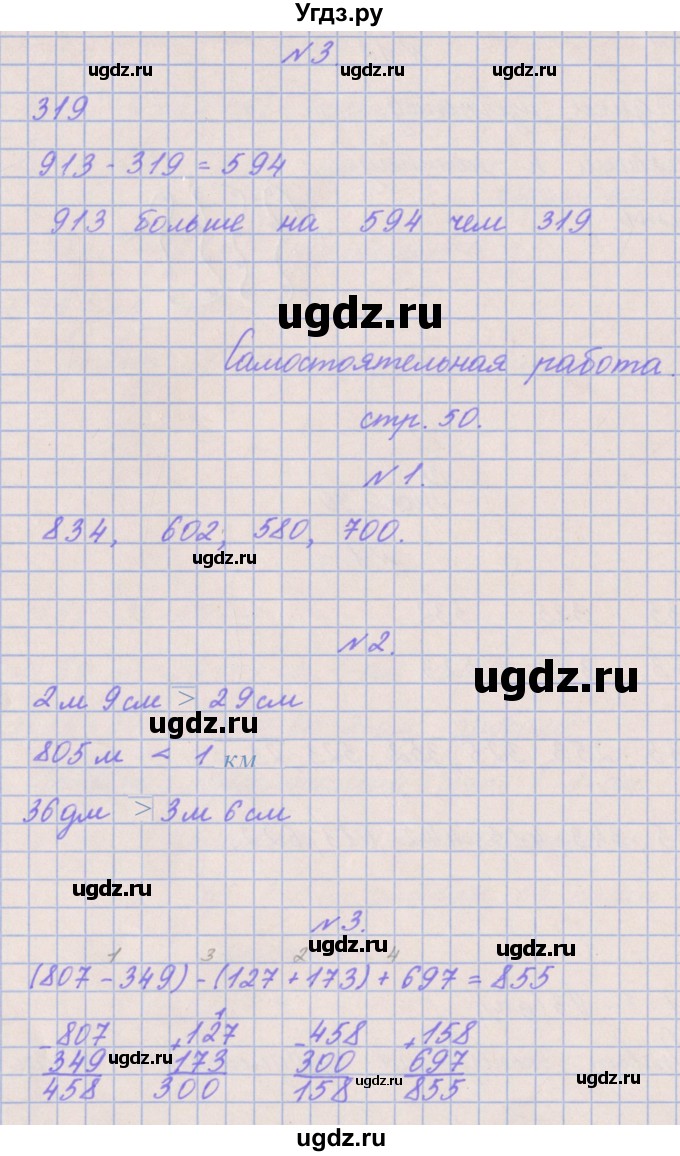 Угдз.ру
N 3
ugdz.ru ugdz.ru ugdz.ru
319
913 - 319 = 594
913 больше на 594 чем 319.
ugdz.ru
Самостоятельная работа.
стр. 50.
N 1.
834, 602, 580, 700.
ugdz.ru
N 2.
ugdz.ru
2 м 9 см > 29 см
ugdz.ru
805 м < 1 км
36 дм > 3 м 6 см
ugdz.ru
N 3.
ugdz.ru
1 3 2 4
(807 - 349) - (127 + 173) + 697 = 855
1
- 807 + 127 - 458 + 158
349 173 300 697
ugdz.ru ugdz.ru
458 300 158 855
ugdz.ru
ugdz.ru